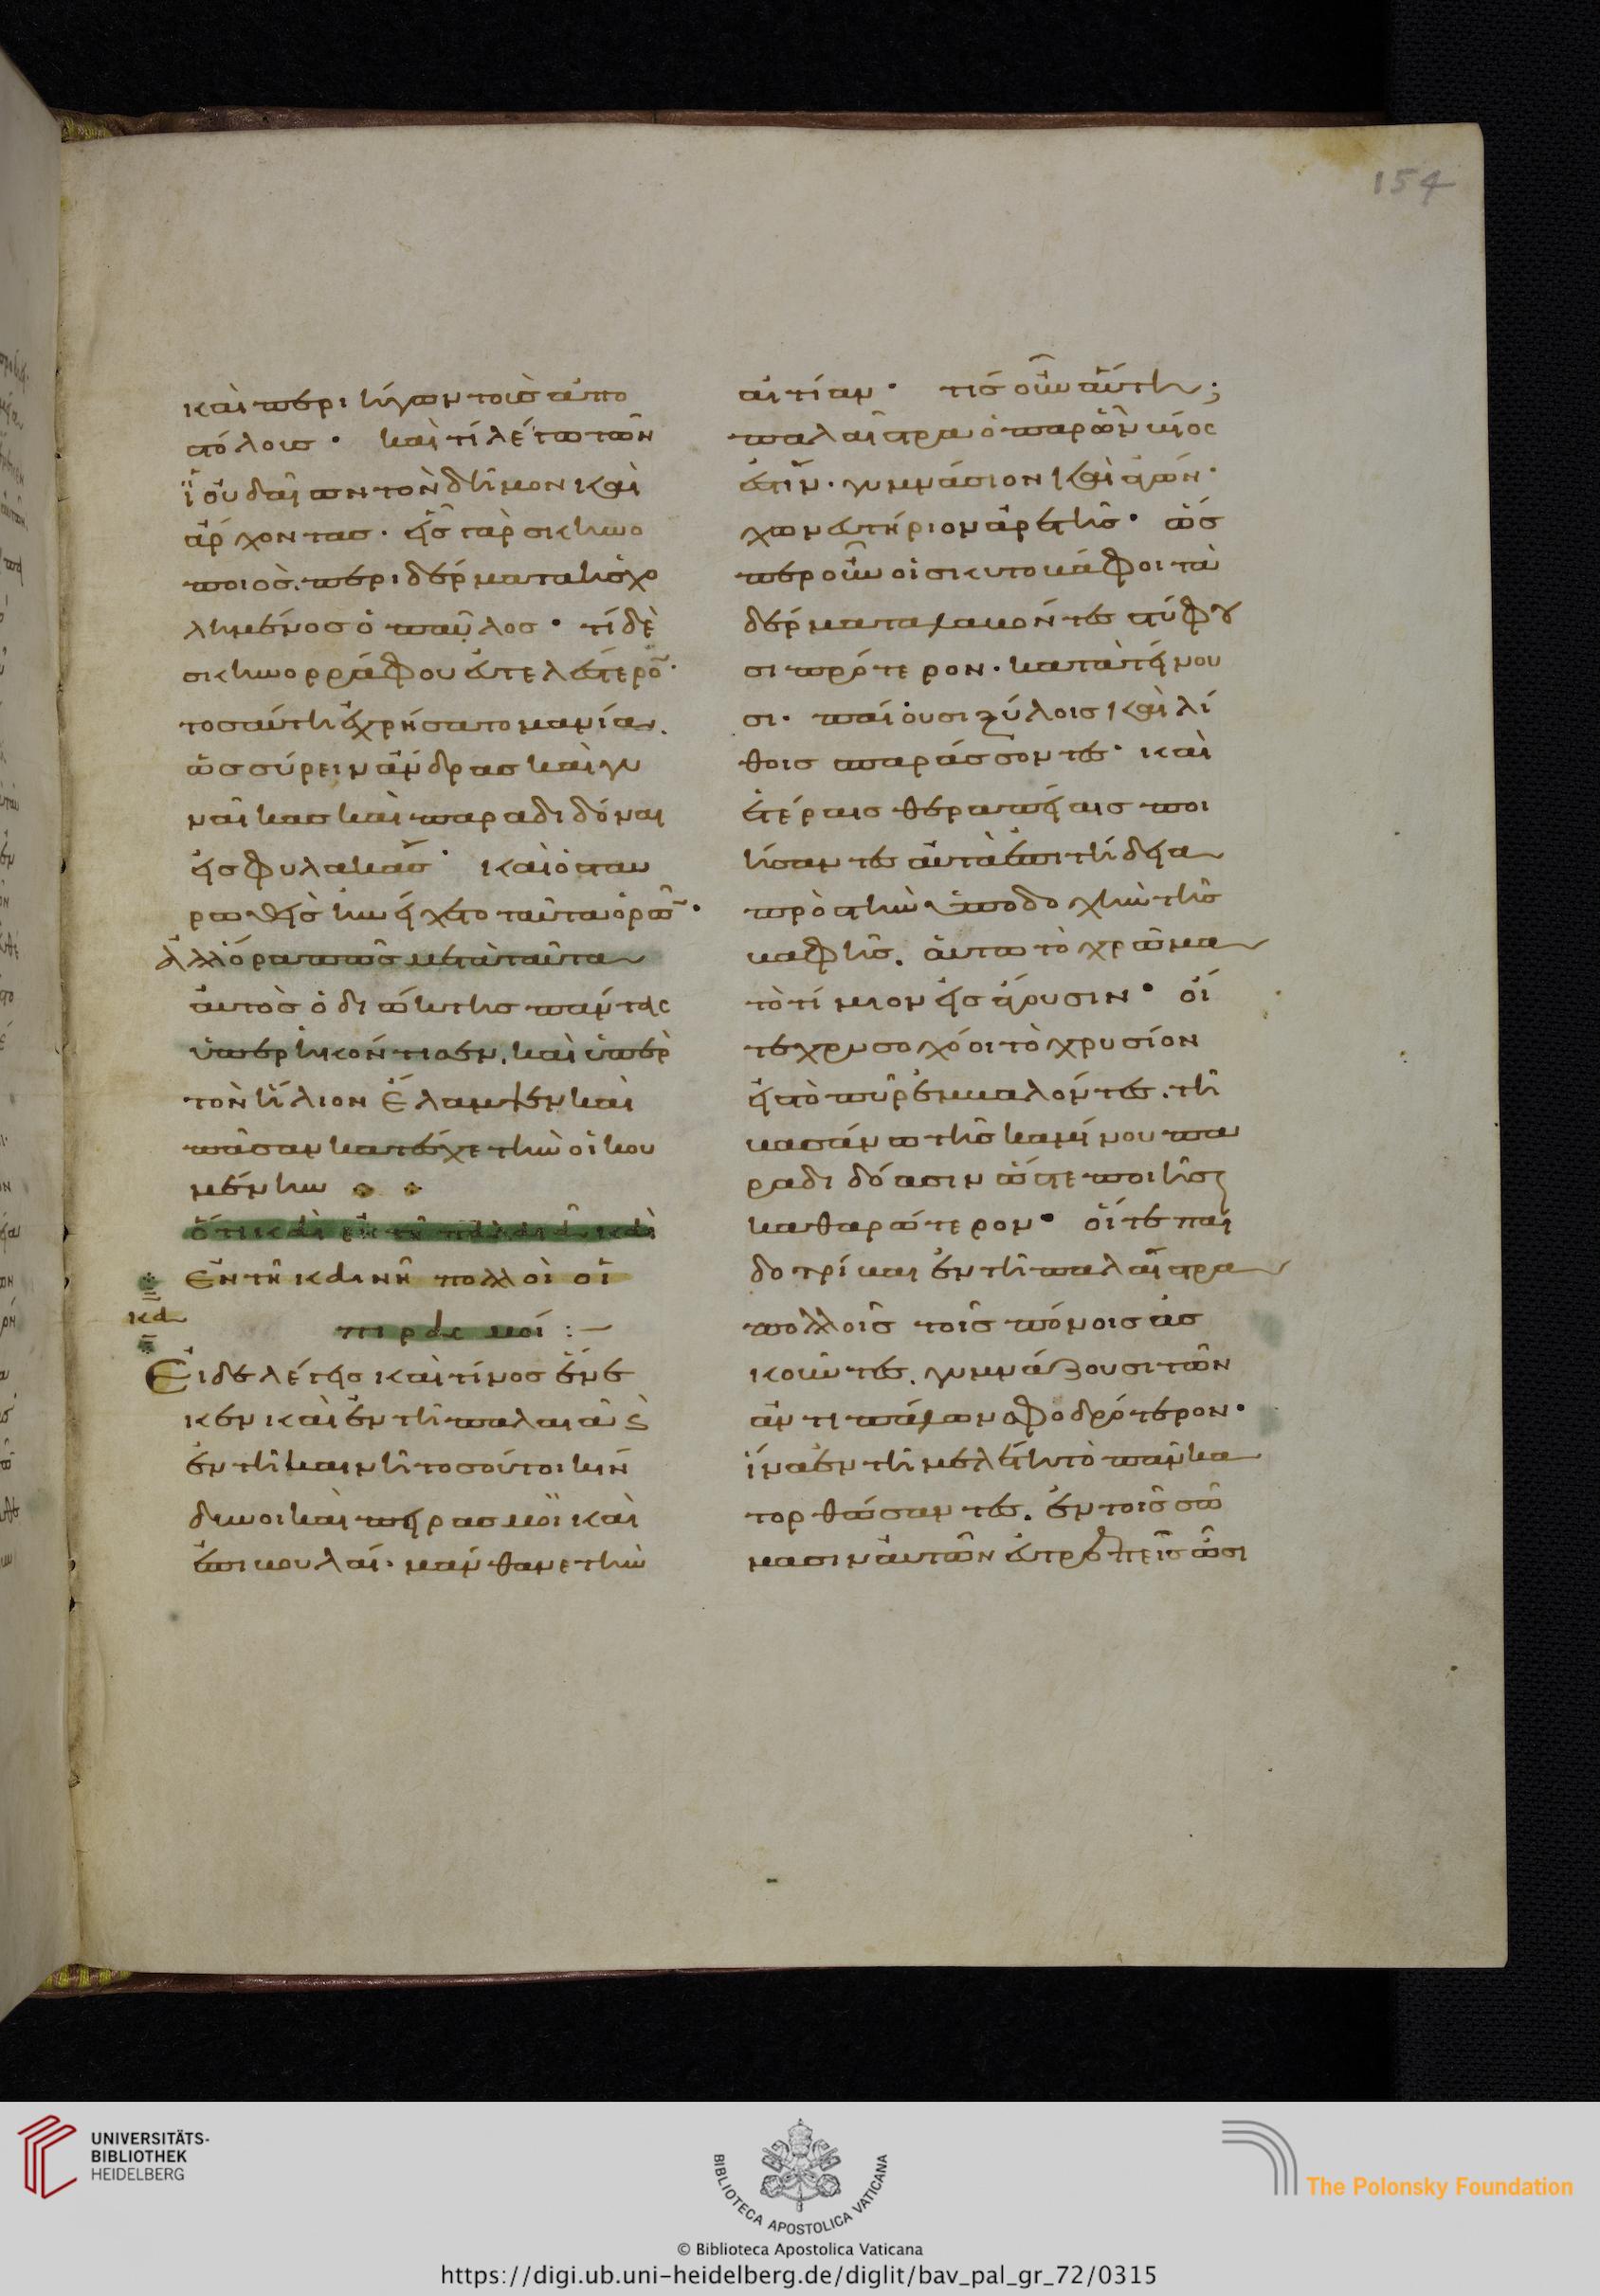 154
καὶ περιήγων τοὺς ἀπο
στόλους· καὶ τί λέγω τῶν
ἰουδαίων τὸν δῆμον καὶ
ἄρχοντας· εἷς γὰρ σκηνο
ποιὸς. περὶ δέρματα ἠσχο
λημένος ὁ παῦλος· τί δὲ
σκηνορράφου εὐτελέστερον·
τοσαύτη ἐχρήσατο μανία.
ὡς σύρειν ἄνδρας καὶ γυ
ναῖκας καὶ παραδιδόναι
εἰς φυλακάς· καὶ ὁ σταυ
ρωθεὶς ἠνείχετο ταῦτα ὁρῶν·
ἀλλ' ὅρα πῶς μετὰ ταῦτα
αὐτὸς ὁ διώκτης πάντας
ὑπερηκόντισεν. καὶ ὑπὲρ
τὸν ἥλιον ἔλαμψεν καὶ
πᾶσαν κατέσχε τὴν οἰκου
μένην
ὅτι καὶ ἐν τῇ παλαιᾷ καὶ
ἐν τῇ καινῇ πολλοὶ οἱ
πιρασμοί :—
κδ
Εἰ δὲ λέγεις καὶ τίνος ἕνε
κεν καὶ ἐν τῇ παλαιᾷ ϛ
ἐν τῇ καινῇ τοσοῦτοι κίν
δυνοι καὶ πειρασμοὶ καὶ
ἐπιβουλαί· μάνθανε τὴν
αἰτίαν· τίς οὖν αὕτη;
παλαίστρα ὁ παρὼν βίος
ἐστίν. γυμνάσιον καὶ ἀγών·
χωνευτήριον ἀρετῆς· ὥσ
περ οὖν οἱ σκυτοβάφοι τὰ
δέρματα λαβόντες στύφου
σι πρότερον. κατατείνου
σι. παίουσι ξύλοις καὶ λί
θοις παράσσοντες· καὶ
ἑτέραις θεραπείαις ποι
ήσαντες αὐτὰ ἐπιτήδεια
πρὸς τὴν ὑποδοχὴν τῆς
βαφῆς. οὕτω τὸ χρῶμα
τὸ τίμιον
οἵ
τε χρυσοχόοι τὸ χρυσίον
εἰς τὸ πῦρ ἐμβαλόντες. τῇ
βασάνω τῆς καμίνου πα
ραδιδόασιν ὥστε ποιῆσαι
καθαρώτερον· οἵ τε παι
δοτρίβαι ἐν τῇ παλαίστρα
πολλοῖς τοῖς πόνοις ἀσ
κοῦντες. γυμνάζουσι τῶν
ἀντιπάλων σφοδρότερον·
ἵνα ἐν τῇ μελέτη τὸ πᾶν κα
τορθώσαντες. ἐν τοῖς σώ
μασιν αὐτῶν εὐτρεπεῖς ὦσι
UNIVERSITÄTS-
BIBLIOTHEK
HEIDELBERG
BIBLIOTECA APOSTOLICA VATICANA
The Polonsky Foundation
© Biblioteca Apostolica Vaticana
https://digi.ub.uni-heidelberg.de/diglit/bav_pal_gr_72/0315